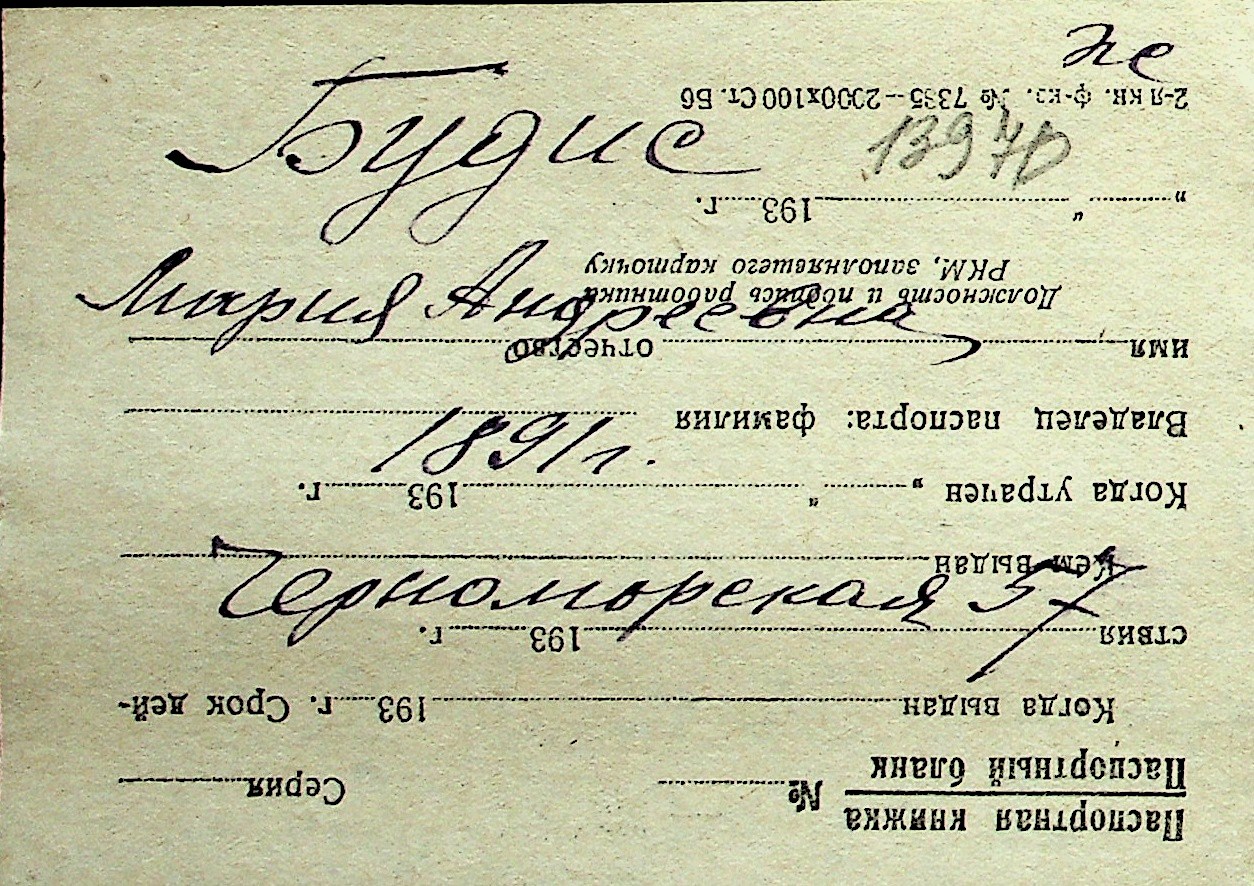 Же
Будис
13970
Мария Андреевна
1891 г.
Черноморская 57
Паспортная книжка
Паспортный бланк
№ Серия
Когда выдан 193 г. Срок дей-
ствия 193 г.
Кем выдан
Когда утрачен „ “ 193 г.
Владелец паспорта: фамилия
имя отчество
Должность и подпись работника
РКМ, заполнявшего карточку
„ “ 193 г.
2-я кн. ф-ка. № 7385—2000х100 Ст. Б6